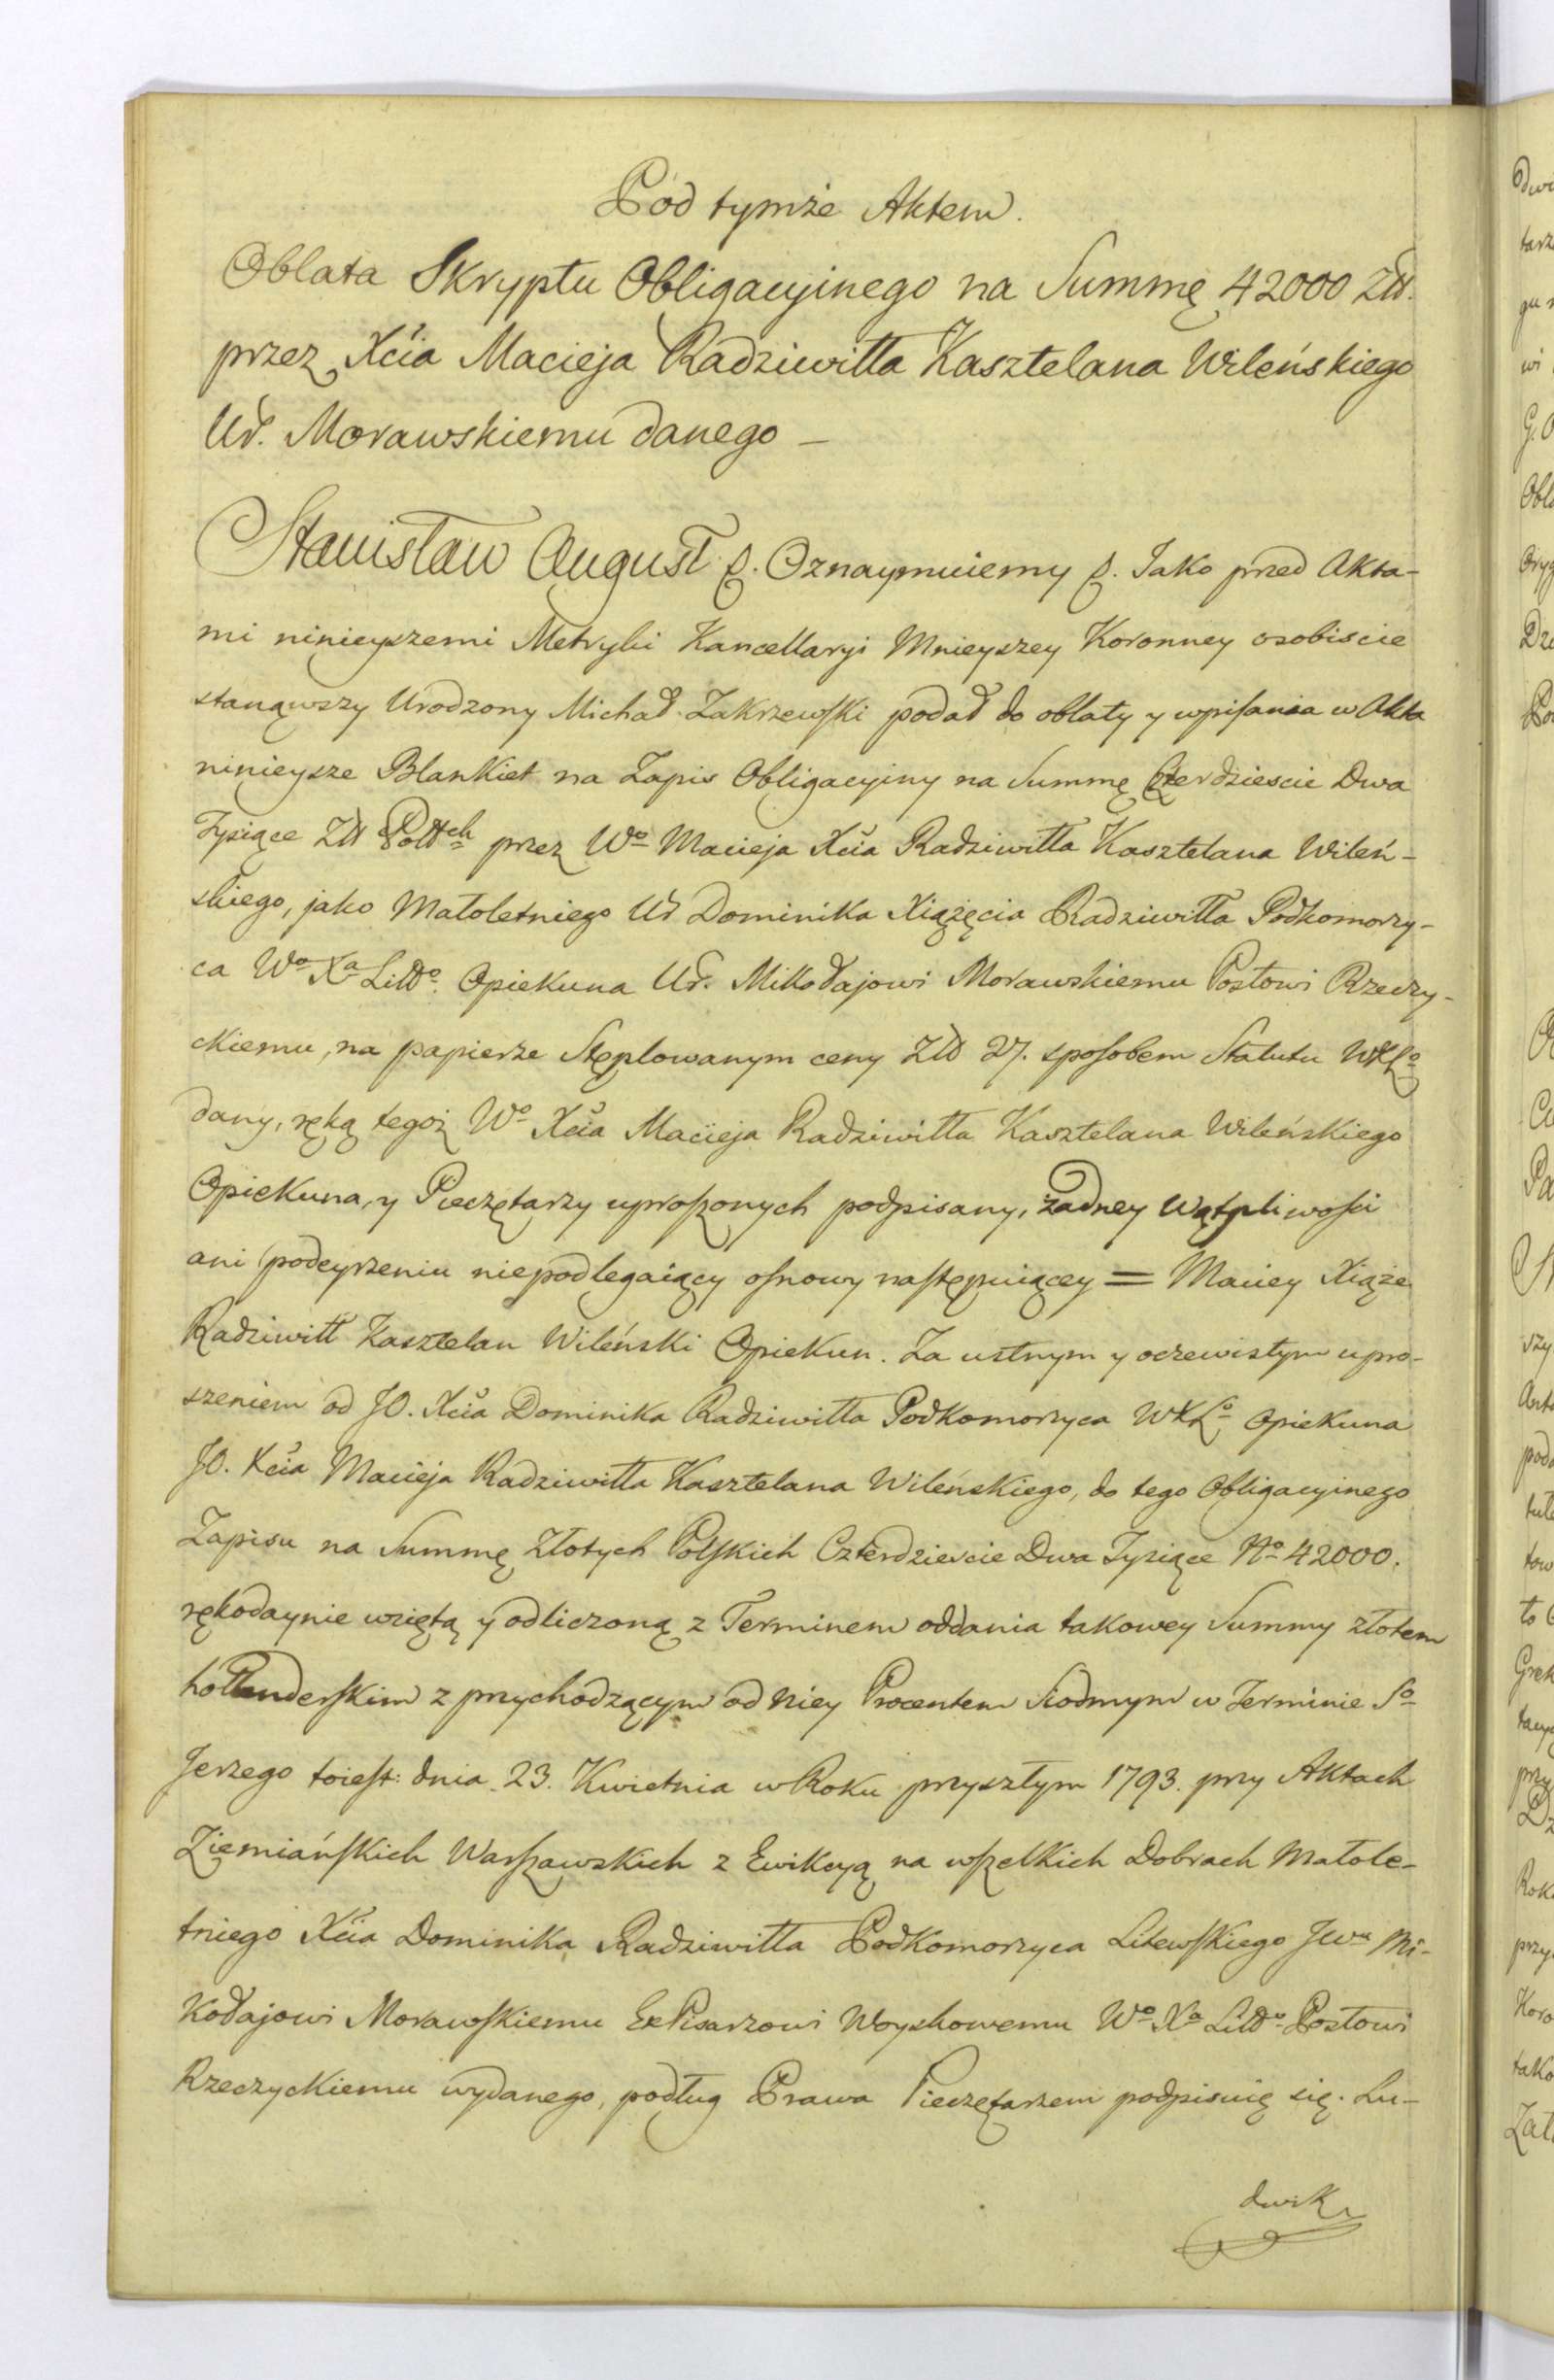 Pod tymże Aktem.
Oblata Skryptu Obligacyinego na Summę 42000 Złł.
przez Xcia Macieja Radziwiłła Kasztelana Wileńskiego
Ur. Morawskiemu danego —
Stanisław August &. Oznaymuiemy &. Jako przed Akta-
mi ninieyszemi Metryki Kancellaryi Mnieyszey Koronney osobiscie
stanąwszy Urodzony Michał Zakrzewski podał do oblaty y wpisania w Akta
ninieysze Blankiet na Zapis Obligacyiny na Summę Czterdziescie Dwa
Tysiące Złł Polłch przez Wo Macieja Xcia Radziwiłła Kasztelana Wileń-
skiego, jako Małoletniego Ur Dominika Xiążęcia Radziwiłła Podkomorzy-
ca Wo Xa Littο. Opiekuna Ur. Mikołajowi Morawskiemu Posłowi Rzeczy-
ckiemu, na papierze Stęplowanym ceny Złł 27. sposobem Statutu WXLo
dany, ręką tegoż Wo Xcia Macieja Radziwiłła Kasztelana Wileńskiego
Opiekuna, y Pieczętarzy uproszonych podpisany, żadney wątpliwości
ani podeyrzeniu niepodlegaiący osnowy następuiącey = Maciey Xiąże
Radziwiłł Kasztelan Wileński Opiekun. Za ustnym y oczewistym upro-
szeniem od JO. Xcia Dominika Radziwiłła Podkomorzyca WXLo Opiekuna
JO. Xcia Macieja Radziwiłła Kasztelana Wileńskiego, do tego Obligacyinego
Zapisu na Summę Złotych Polskich Czterdziescie Dwa Tysiące No 42000.
rękodaynie wziętą y odliczoną z Terminem oddania takowey Summy złotem
hollenderskim z przychodzącym od niey Procentem Siodmym w Terminie So
Jerzego toiest: dnia 23. Kwietnia w Roku przyszłym 1793. przy Aktach
Ziemiańskich Warszawskich z Ewikcyą na wszelkich Dobrach Małole-
tniego Xcia Dominika Radziwiłła Podkomorzyca Litewskiego JWu Mi-
kołajowi Morawskiemu ExPisarzowi Woyskowemu Wo Xa Littο Posłowi
Rzeczyckiemu wydanego, podług Prawa Pieczętarzem podpisuię się. Lu-
dwik